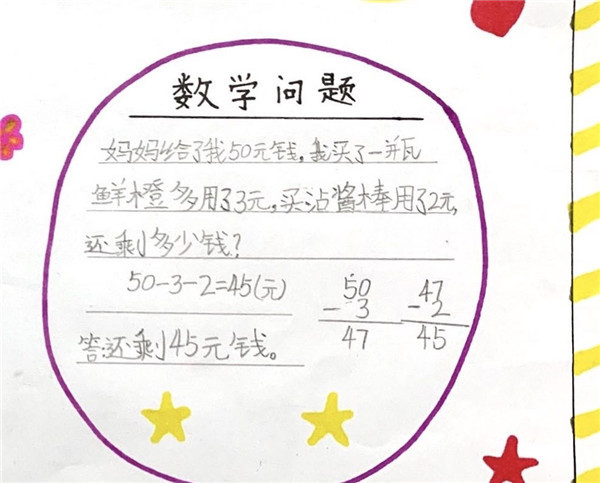 数学问题
妈妈给了我50元钱,我买了一瓶
鲜橙多用了3元,买沾酱棒用了2元,
还剩多少钱?
50-3-2=45(元)
50
-3
47
47
-2
45
答:还剩45元钱。